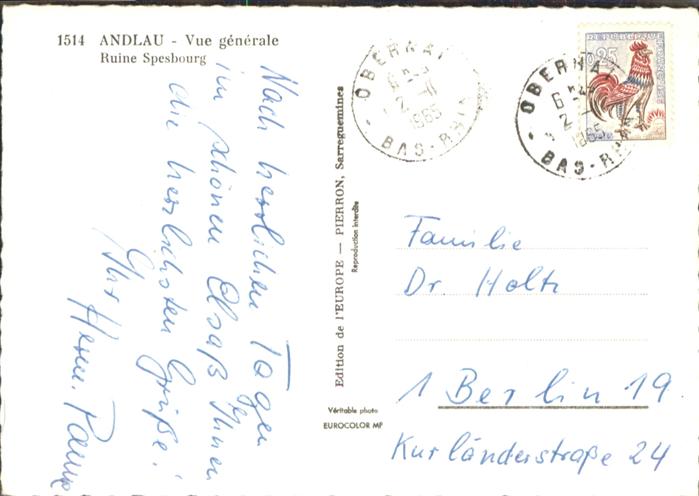 1514 ANDLAU - Vue générale
Ruine Spesbourg
Nach herrlichen Tagen
im schönen Elsaß Ihnen
die herzlichsten Grüße!
Ihr Herm.
Edition de l'EUROPE — PIERRON, Sarreguemines
Reproduction interdite
Véritable photo
EUROCOLOR MP
OBERNAI
6 H
2 - 11
1965
BAS-RHIN
OBERNAI
6 H
2
1965
BAS-RHIN
0,25
REPUBLIQUE
FRANÇAISE
Familie
Dr. Holtz
1 Berlin 19
Kurländerstraße 24